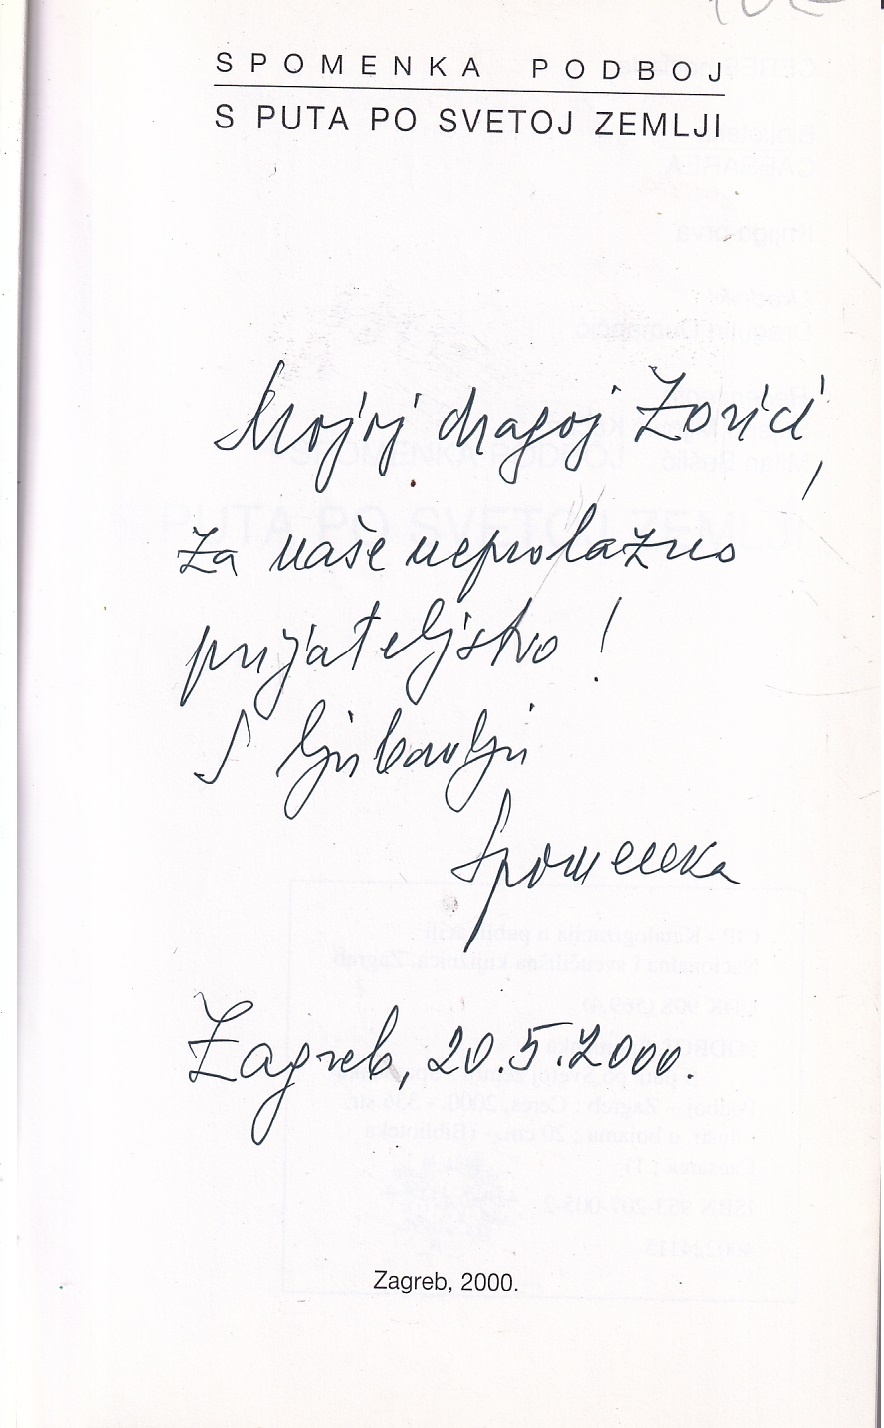 SPOMENKA PODBOJ
S PUTA PO SVETOJ ZEMLJI
Mojoj dragoj Zorici,
za naše neprolazno
prijateljstvo!
S ljubavlju
Spomenka
Zagreb, 20.5.2000.
Zagreb, 2000.